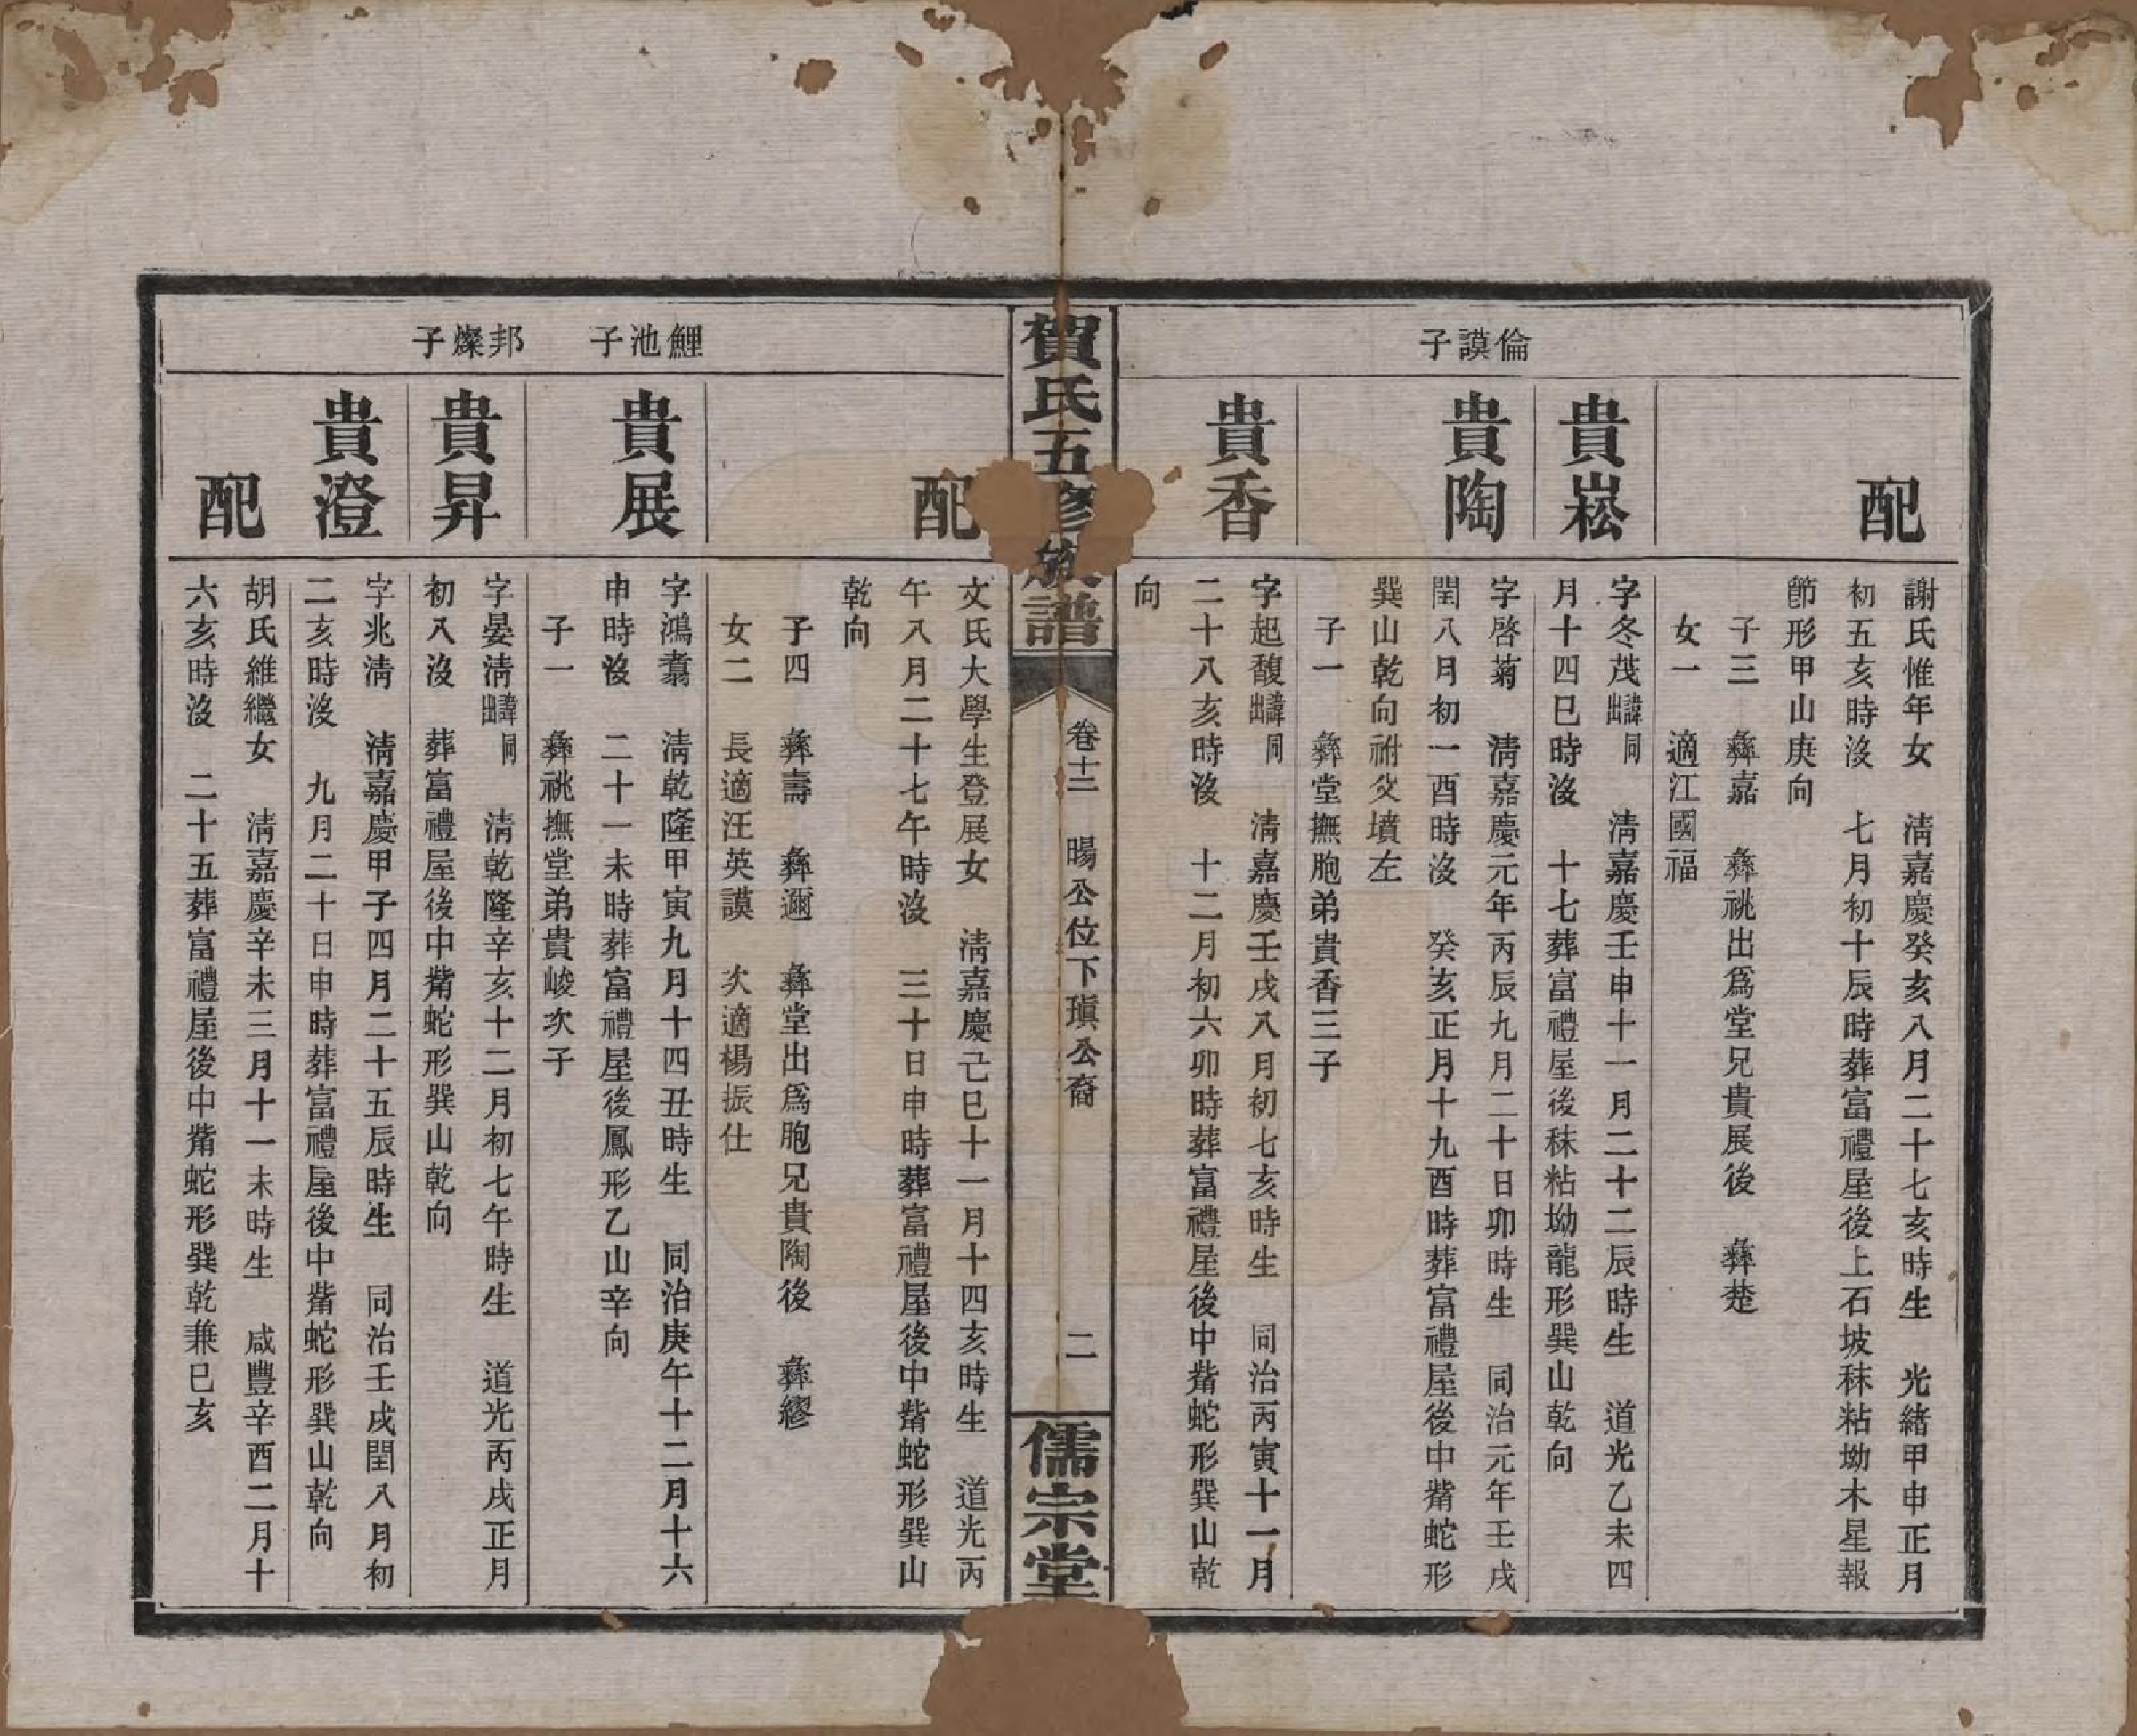 倫謨子
配
謝氏惟年女　淸嘉慶癸亥八月二十七亥時生　光緒甲申正月
初五亥時沒　七月初十辰時葬富禮屋後上石坡秣粘坳木星報
節形甲山庚向
子三　彝嘉　彝祧出爲堂兄貴展後　彝楚
女一　適江國福
貴崧
字冬茂諱同出　淸嘉慶壬申十一月二十二辰時生　道光乙未四
月十四巳時沒　十七葬富禮屋後秣粘坳龍形巽山乾向
貴陶
字啓菊　淸嘉慶元年丙辰九月二十日卯時生　同治元年壬戌
閏八月初一酉時沒　癸亥正月十九酉時葬富禮屋後中觜蛇形
巽山乾向祔父墳左
子一　彝堂撫胞弟貴香三子
貴香
字起馥諱同出　淸嘉慶壬戌八月初七亥時生　同治丙寅十一月
二十八亥時沒　十二月初六卯時葬富禮屋後中觜蛇形巽山乾
向
賀氏五修族譜
卷十二　暘公位下瑱公裔
二
儒宗堂
鯉池子　邦燦子
配
文氏大學生登展女　淸嘉慶己巳十一月十四亥時生　道光丙
午八月二十七午時沒　三十日申時葬富禮屋後中觜蛇形巽山
乾向
子四　彝壽　彝邇　彝堂出爲胞兄貴陶後　彝繆
女二　長適汪英謨　次適楊振仕
貴展
字鴻翥　淸乾隆甲寅九月十四丑時生　同治庚午十二月十六
申時沒　二十一未時葬富禮屋後鳳形乙山辛向
子一　彝祧撫堂弟貴峻次子
貴昇
字晏淸諱同出　淸乾隆辛亥十二月初七午時生　道光丙戌正月
初入沒　葬富禮屋後中觜蛇形巽山乾向
貴澄
字兆淸　淸嘉慶甲子四月二十五辰時生　同治壬戌閏八月初
二亥時沒　九月二十日申時葬富禮屋後中觜蛇形巽山乾向
配
胡氏維繼女　淸嘉慶辛未三月十一未時生　咸豐辛酉二月十
六亥時沒　二十五葬富禮屋後中觜蛇形巽乾兼巳亥